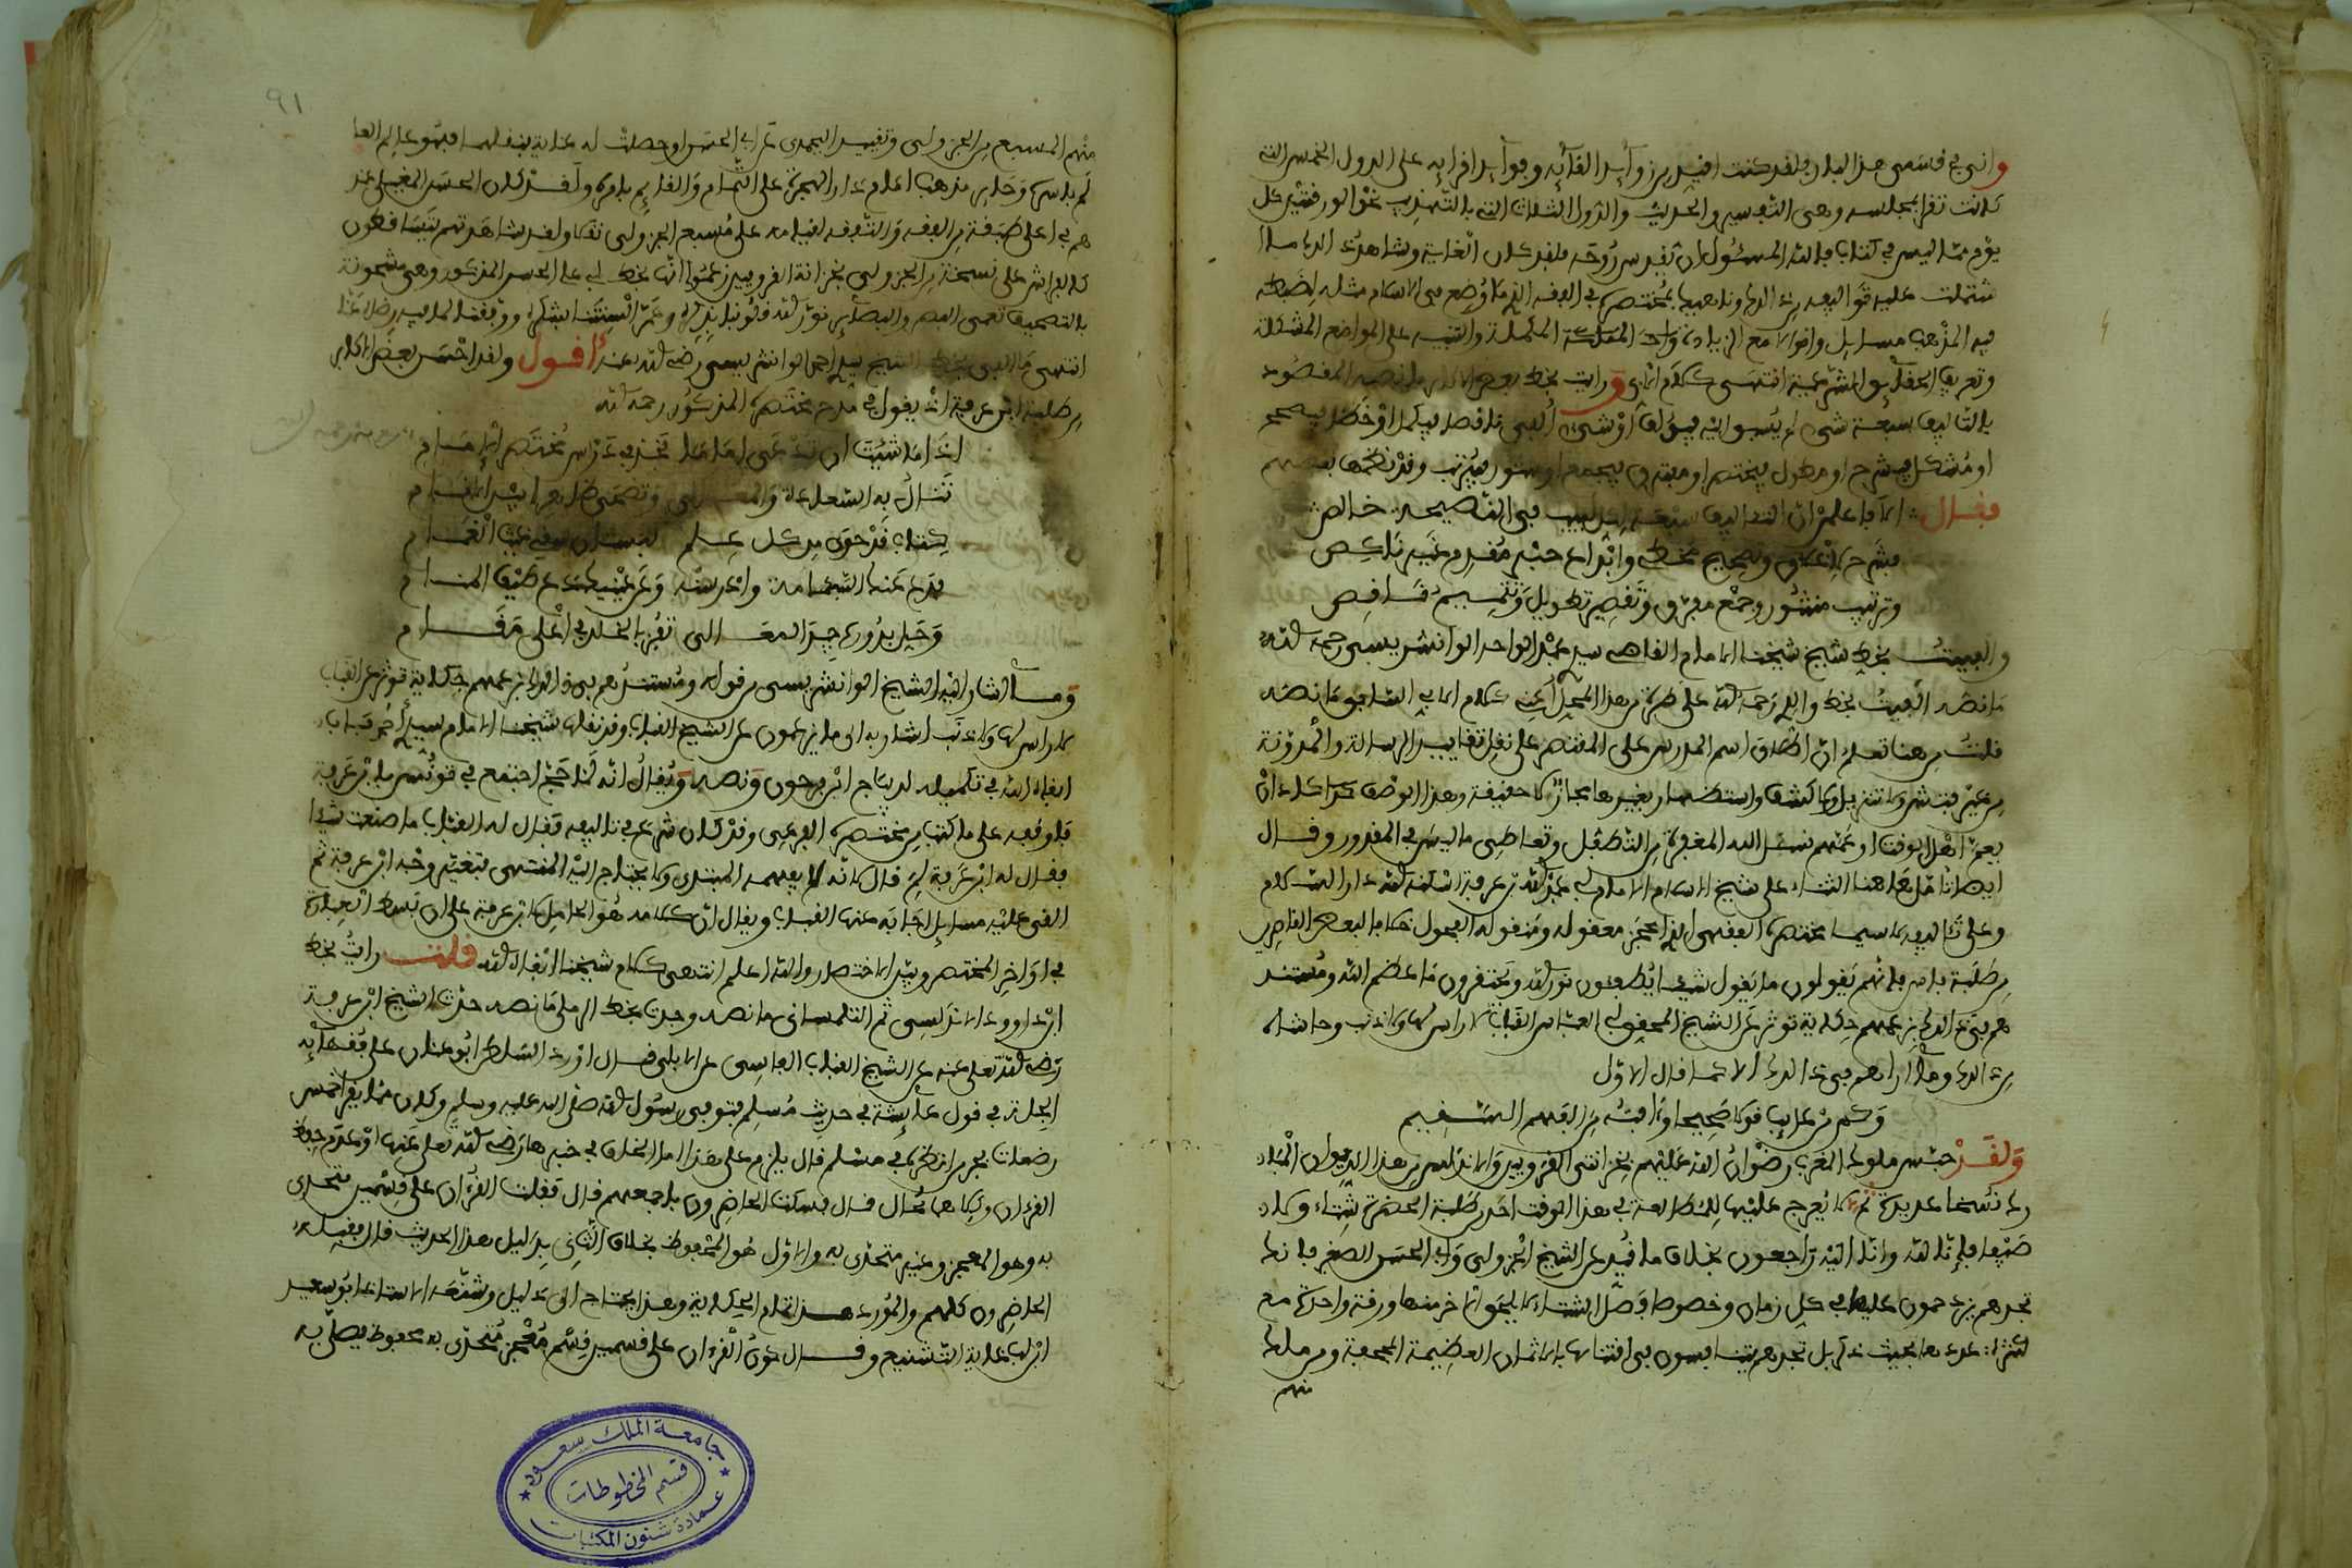 واني في قسمي هذا البلاد ولقد كنت افيد من زوائد القائه وفوائد اقرائه على الدول الخمس التي
كانت تقرا بمجلسه وهي التفسير والحديث والدول الثلاث التي بالتهذيب نحو الورقتين كل
يوم مما ليس في كتاب فالله المسئول ان يقدس روحه فلقد كان الغاية وشاهد ذلك ما
اشتملت عليه تواليفه من ذلك وناهيك بمختصره في الفقه الذي ما وضع في الاسلام مثله لضبطه
فيه المذهب مسايل واقوالا مع الزيادة المكملة والتنبيه على المواضع المشكلة
وتعريف الحقائق الشرعية انتهى كلام الابي ورايت بخط بعض ما نصه المقصود
بالتاليف سبعة شيء لم يسبق اليه فيؤلف او شيء الفي ناقصا فيكمل او خطا فيصحح
او مشكل فيشرح او مطول فيختصر او مفترق فيجمع او منثور فيرتب وقد نظمها بعضهم
فقال الا فاعلمن ان التواليف سبعة لكل لبيب في النصيحة خالص
فشرح لاغلاق وتصحيح مخطئ وابداع حبر مقدم غير ناكص
وترتيب منثور وجمع مفرق وتقصير تطويل وتتميم ناقص
والفيت بخط شيخ شيخنا الامام القاضي سيدي عبد الواحد الوانشريسي رحمه الله
ما نصه الفيت بخط والدي رحمه الله على طرة من هذا المحل اعني كلام الابي السابق ما نصه
قلت من هنا تعلم ان اطلاق اسم المدرس على المقتصر على نقل تقاييد الرسالة والمدونة
من غير فتش ولا تنزيل ولا كشف واستظهار بغيرها مجاز لا حقيقة وهذا الوصف
يعم اهل الوقت او جلهم نسئل الله المغفرة من التطفل وتعاطي ما ليس في المقدور وقال
ايضا تامل هنا الثناء على شيخ الاسلام الامام ابي عبد الله بن عرفة اسكنه الله دار السلام
وعلى تاليفه لا سيما مختصره الفقهي الذي اعجز معقوله ومنقوله الفحول خلافا لبعض القاصرين
من طلبة فاس فانهم يقولون ما يقول شيئا يطفئون نور الله ويحتقرون ما عظم الله ومستند
هم في ذلك بزعمهم حكاية توثر عن الشيخ المحقق ابي العباس القباب لا راس لها ولا ذنب وحاشاه
من ذلك وما اراهم في ذلك الا كما قال الاول
وكم من عايب قولا صحيحا وافته من الفهم السقيم
ولقد حبس ملوك المغرب رضوان الله عليهم بخزانتي القرويين والاندلس من هذا الديوان المبارك
نسخا عديدة ثم لا يعرج عليها للمطالعة في هذا الوقت احد من طلبة الحضرة شتاء ولا
صيفا فانا لله وانا اليه راجعون بخلاف ما قيد عن الشيخ الجزولي وابي الحسن الصغير فانك
تجدهم يزدحمون عليها في كل زمان وخصوصا فصل الشتاء لا يلحق اخر منها ورقة واحدة مع
كثرة عددها بحيث ذكر بل تجدهم يتنافسون في اقتنائها بالاثمان العظيمة المجحفة ومن ملك
منهم
٩١
منهم المسبع من الجزولي وتقييد اليحمدي عن ابي الحسن او حصلت له عناية بنقلها فهو عالم العا
لم بفاس وحامل مذهب امام دار الهجرة على التمام والقايم بامره ولقد كان الحسن المغيلي عند
هم في اعلى طبقة من الفقه والتفقه لقيامه على مسبع الجزولي نقلا ولقد شاهدتهم يتساقطون
كالفراش على نسخة من الجزولي بخزانة القرويين زعموا انها بخط ابي علي الحسن المذكور وهي مشحونة
بالتصحيف تعمي البصر والبصاير نور الله قلوبنا بذكره وعمر السنتنا بشكره ووفقنا لما فيه رضاه عنا
انتهى ما الفي بخط الشيخ سيدي احمد الوانشريسي رضي الله عنه اقول ولقد احسن بعض الاكابر
من طلبة ابن عرفة اذ يقول في مدح مختصره المذكور رحمه الله
اذا ما شئت ان تدعى اماما فخذ في درس مختصر الامام
تنال به السعادة والمعالي
كتاب قد حوى من كل علم
فدع عنك السئامة وادرسنه وعن عينيك دع طيف المنام
وخيل بدور في المعالي تفز بالخلد في اعلى مقام
وما اشار اليه الشيخ الوانشريسي من قوله ومستندهم في ذلك بزعمهم حكاية توثر عن القباب
لا راس لها ولا ذنب اشار به الى ما يزعمون عن الشيخ القباب وقد نقلها شيخنا الامام سيدي احمد بابا
ابقاه الله في تكميله لديباج ابن فرحون ونصه ويقال انه لما حج اجتمع في تونس بابن عرفة
فاوقفه على ما كتب من مختصره الفرعي وقد كان شرع في تاليفه فقال له القباب ما صنعت شيئا
فقال له ابن عرفة لم قال لانه لا يفهمه المبتدي ولا يحتاج اليه المنتهي فتغير وجه ابن عرفة ثم
القى عليه مسايل اجابه عنها القباب ويقال ان كلامه هو الحامل لابن عرفة على ان بسط العبارة
في اواخر المختصر وبين الاختصار والله اعلم انتهى كلام شيخنا ابقاه الله قلت رايت بخط
ابن داوود الاندلسي ثم التلمساني ما نصه وجدت بخط الرملي ما نصه حدثنا الشيخ ابن عرفة
رضي الله تعلى عنه عن الشيخ القباب الفاسي عن الابلي قال اورد السلطان ابو عنان على فقهائه
الجلة في قول عائشة في حديث مسلم فتوفي رسول الله صلى الله عليه وسلم وكان مما يقرا خمس
رضعات نحرم انظره في مسلم قال يلزم على هذا اما الخلف في خبرها رضي الله تعلى عنها او عدم حفظ
القرءان وكلاهما محال قال فسكت الحاضرون باجمعهم قال فقلت القرءان على قسمين متحدى
به وهو المعجز وغير متحدى به والاول هو المحفوظ بخلاف الثاني بدليل هذا الحديث قال فقبله
الحاضرون كلهم والمورد هذا تمام الحكاية وهذا يحتاج الى دليل وشنعه الاستاذ ابو سعيد
ابن لب غاية التشنيع وقال كون القرءان على قسمين قسم معجز متحدى به محفوظ يصلى به
جامعة الملك سعود
قسم المخطوطات
عمادة شئون المكتبات